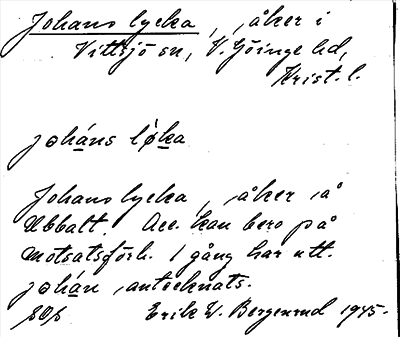 Johans lycka, åker i
Vittsjö sn, V. Göinge hd,
Krist. l.
joháns lø̀ka
Johans lycka, åker å
Ubbalt. Acc. kan bero på
motsatsförh. 1 gång har utt.
johán, antecknats.
Erik W. Bergenrud 1945.